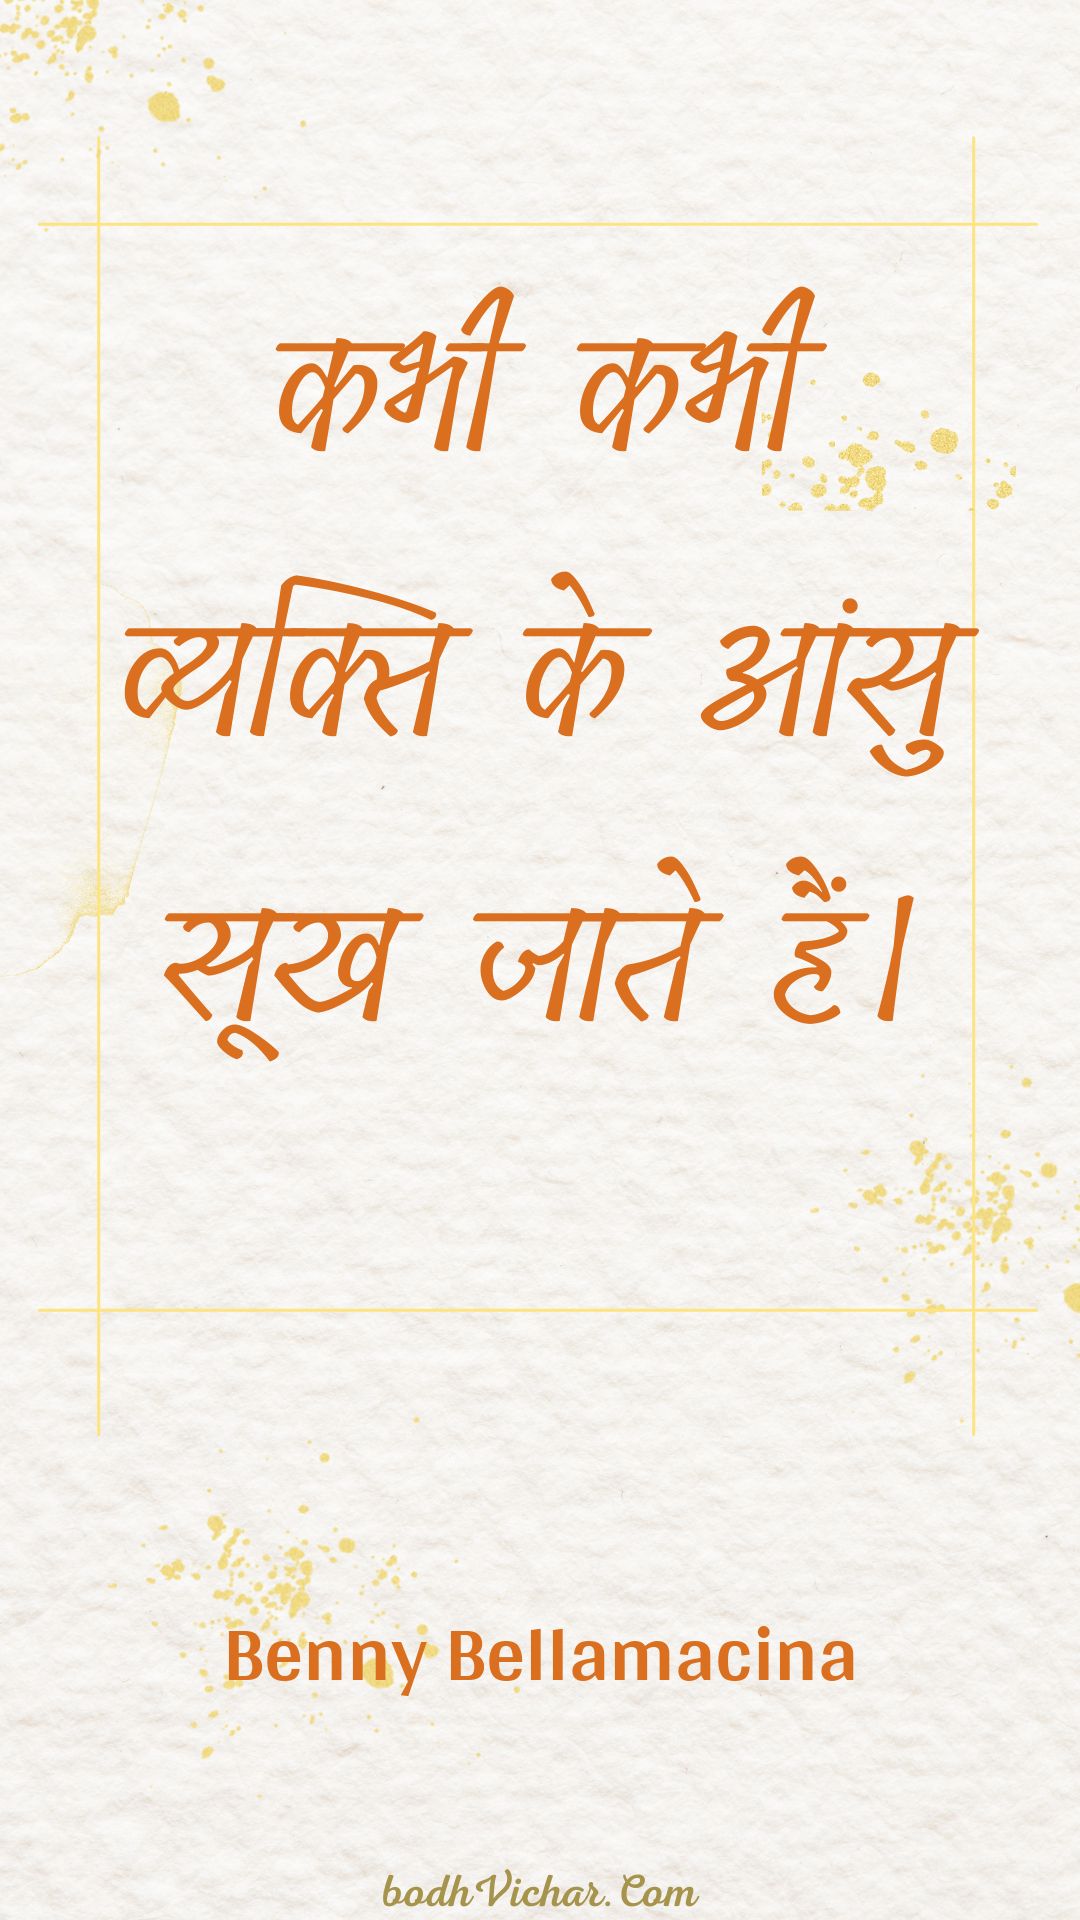 कभी कभी
व्यक्ति के आंसु
सूख जाते हैं।
Benny Bellamacina
bodhVichar.Com